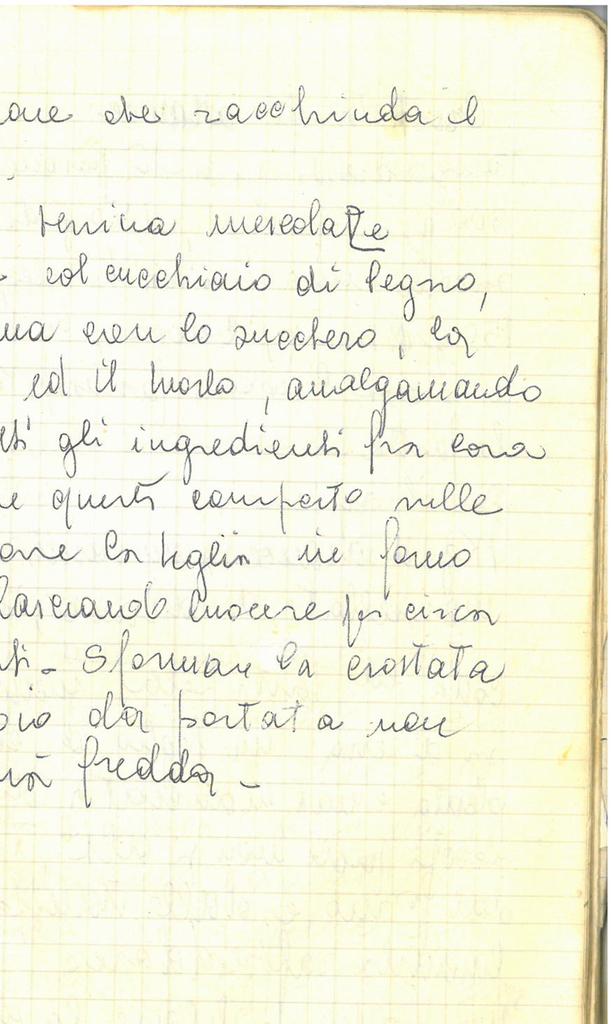 che racchiuda il
terrina mescolate
col cucchiaio di legno,
con lo zucchero, la
ed il tuorlo, amalgamando
gli ingredienti fra loro
questo composto nelle
la teglia in forno
lasciando cuocere per circa
ti. Sformare la crostata
da portata non
fredda.